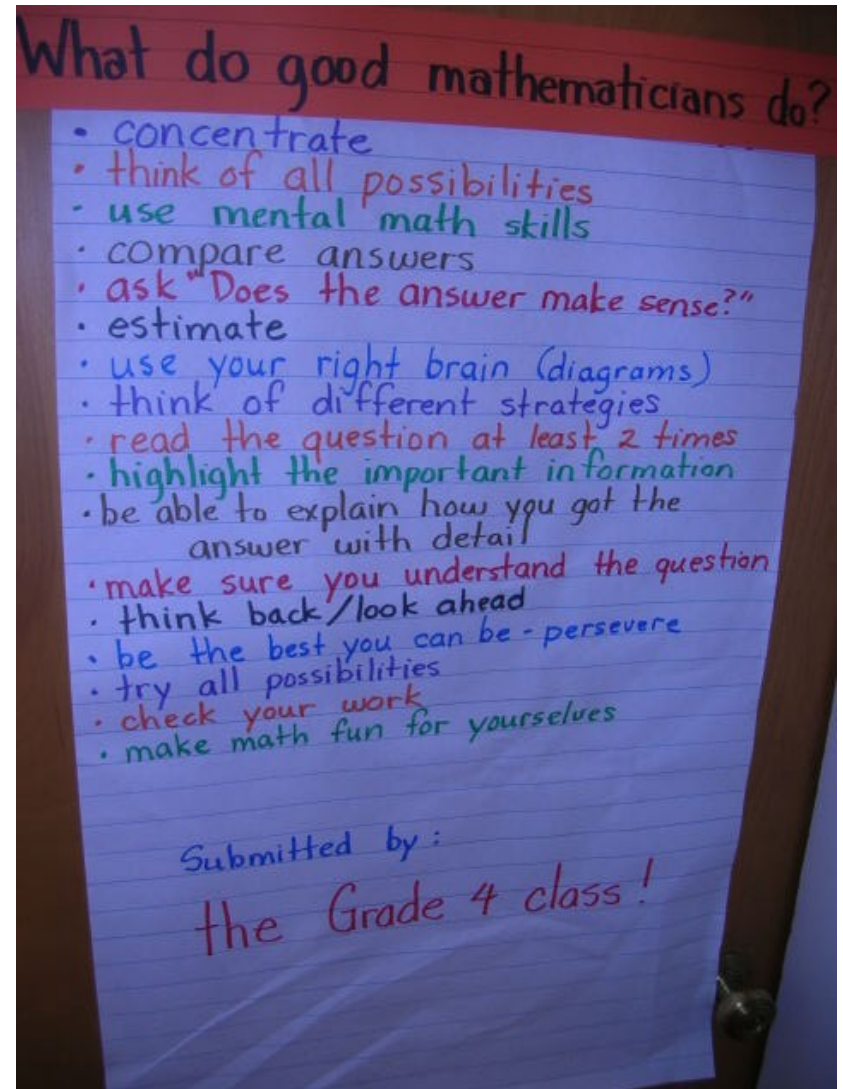 What do good mathematicians do?
• concentrate
• think of all possibilities
• use mental math skills
• compare answers
• ask "Does the answer make sense?"
• estimate
• use your right brain (diagrams)
• think of different strategies
• read the question at least 2 times
• highlight the important information
• be able to explain how you got the
answer with detail
• make sure you understand the question
• think back/look ahead
• be the best you can be - persevere
• try all possibilities
• check your work
• make math fun for yourselves
Submitted by:
the Grade 4 class!